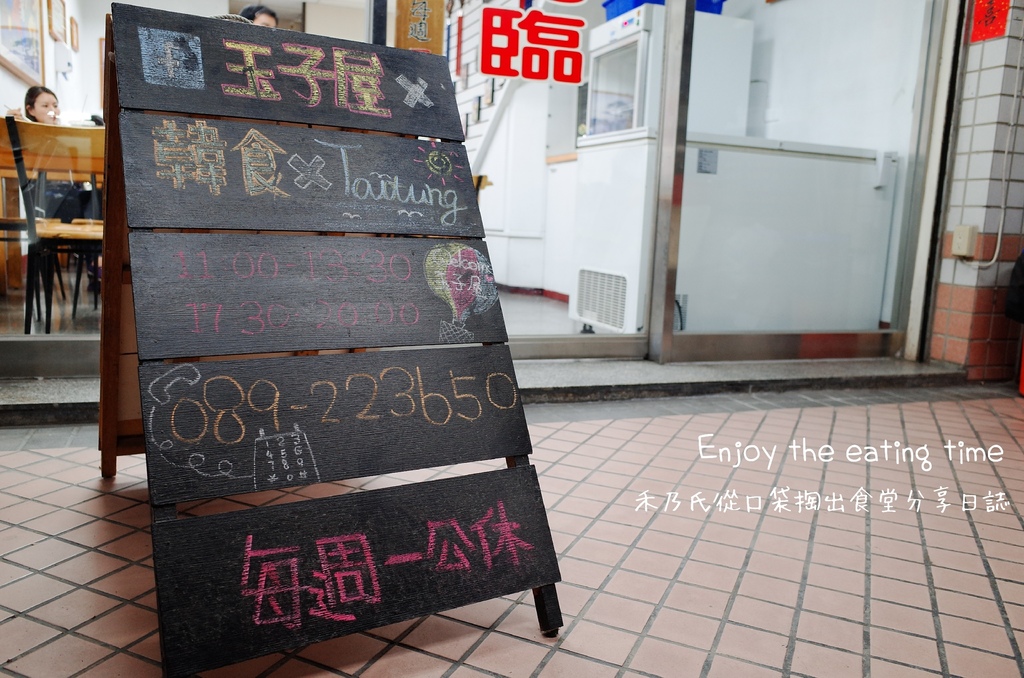 玉子屋×
韓食×Taitung
11:00-13:30
17:30-20:00
Welcome
子屋
089-223650
1 2 3
4 5 6
7 8 9
* 0 #
每週一公休
每週
臨
Enjoy the eating time
禾乃氏從口袋掏出食堂分享日誌